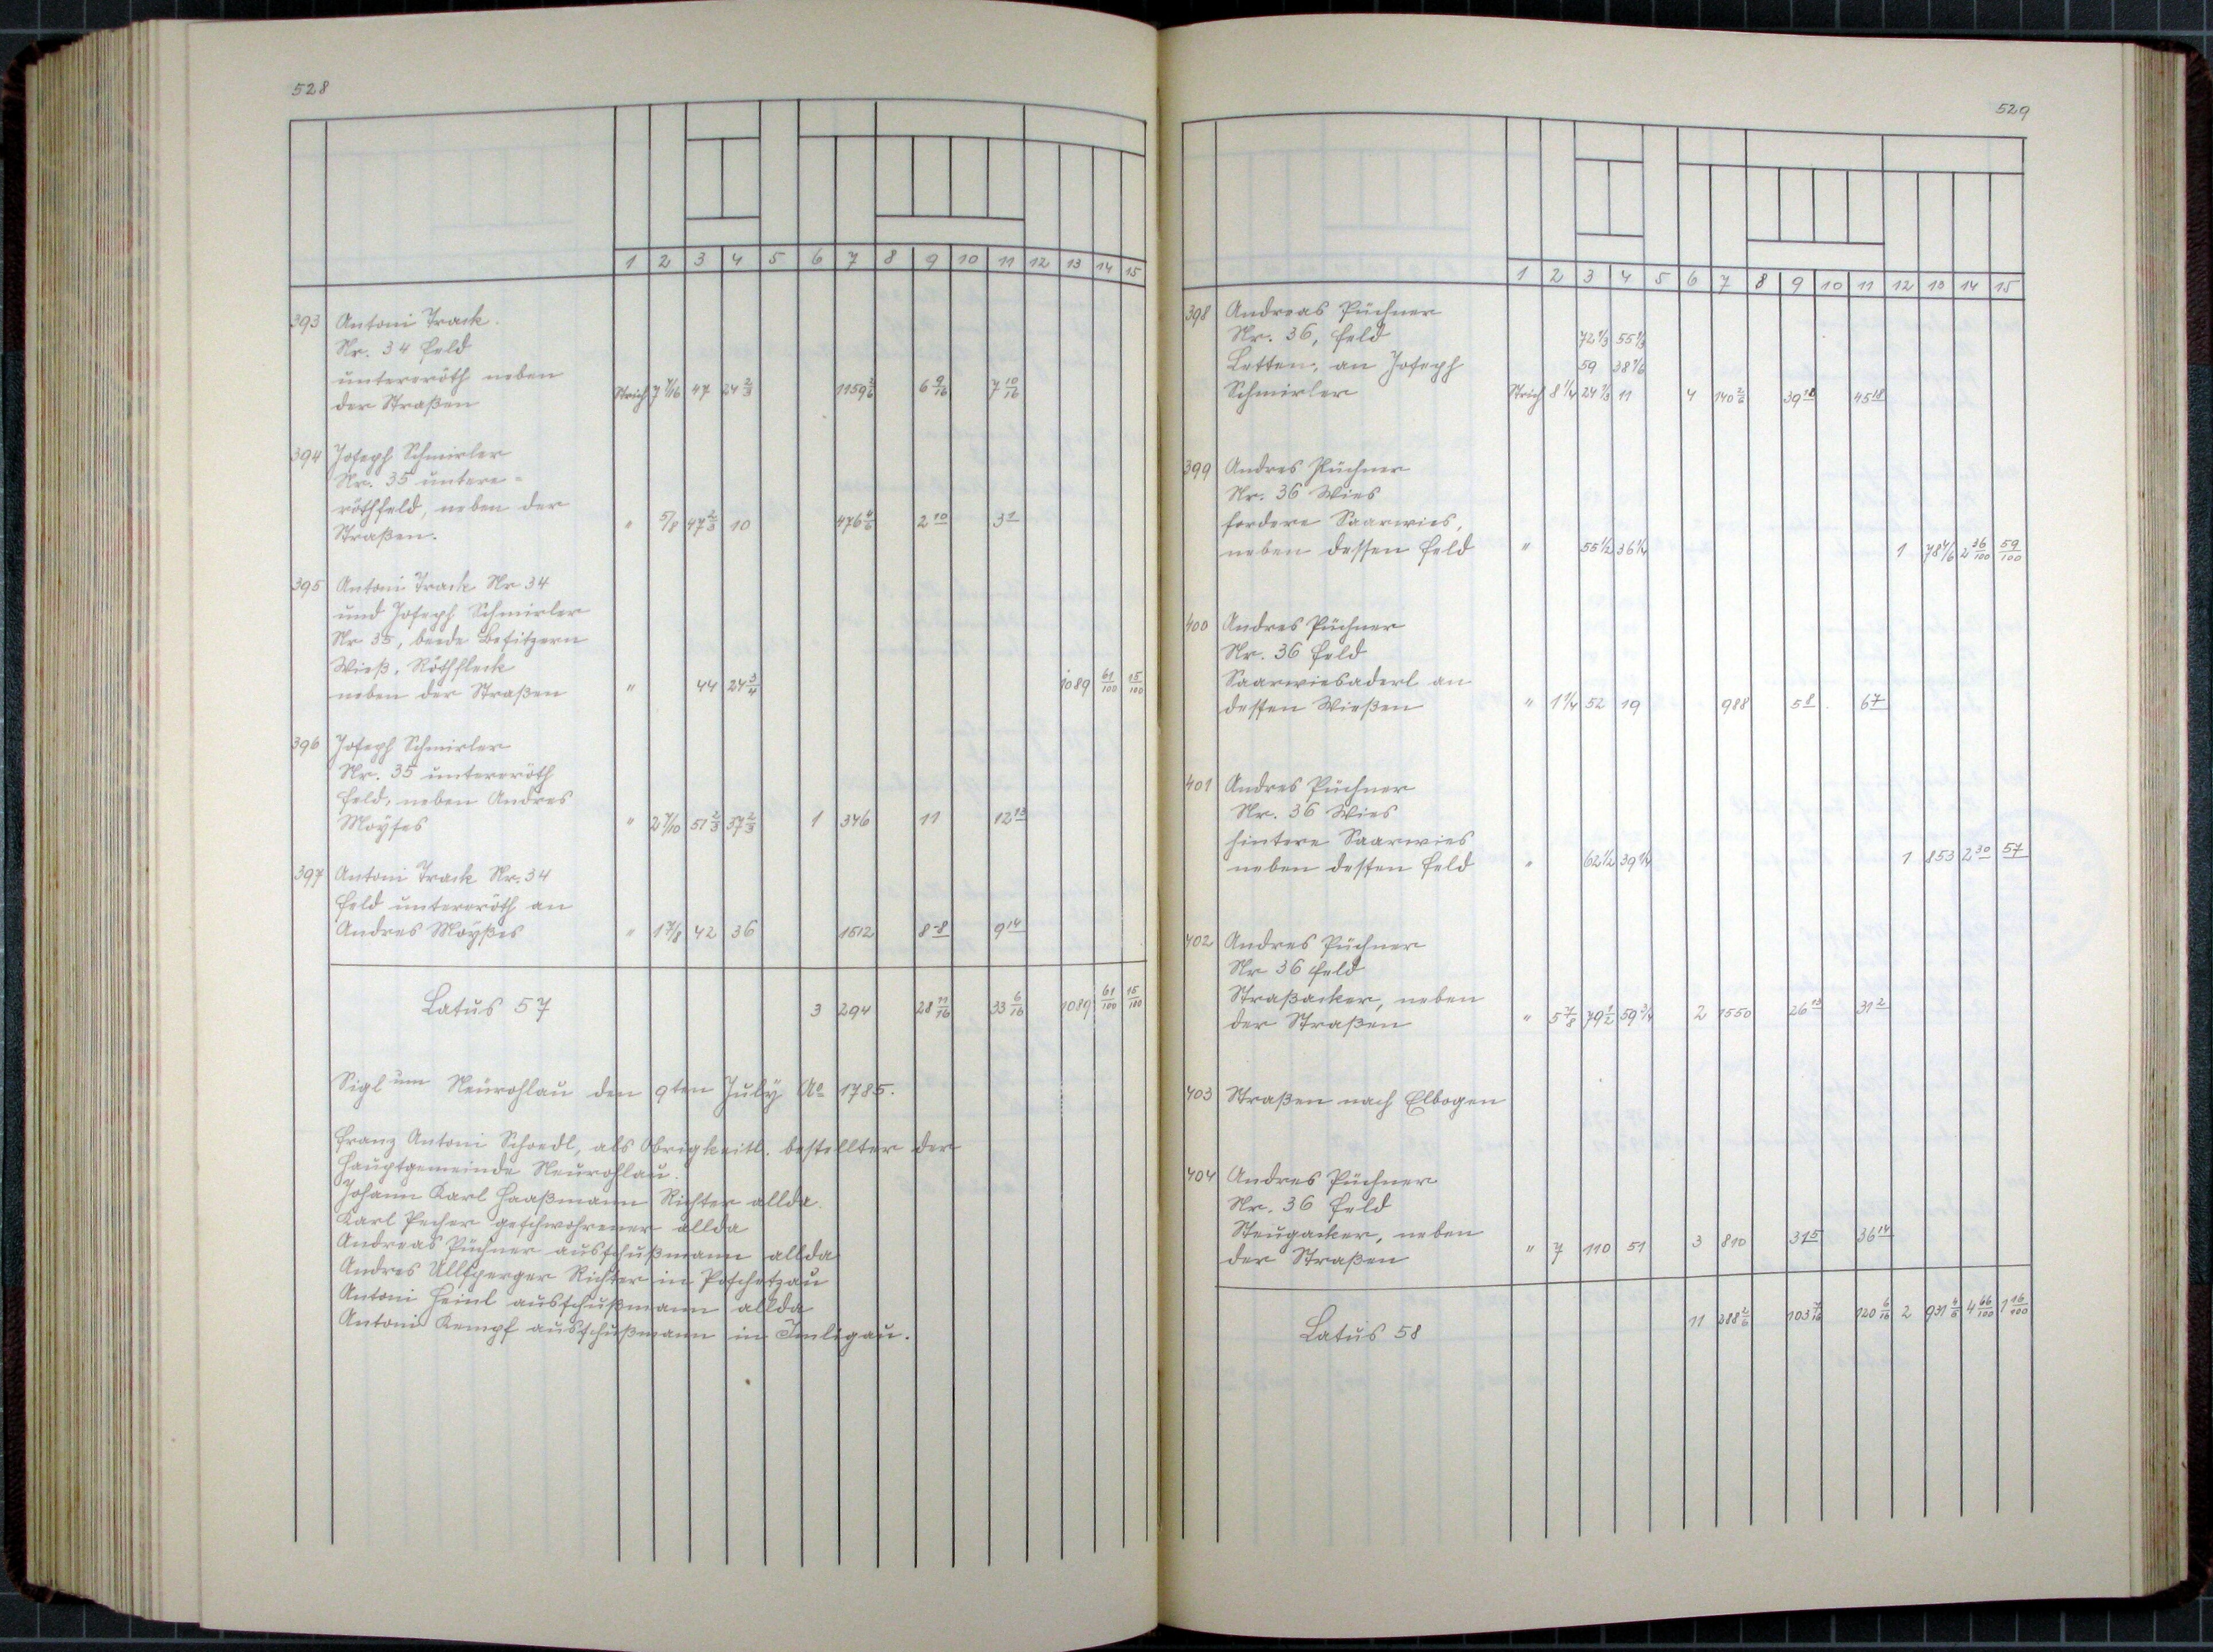 528
1 2 3 4 5 6 7 8 9 10 11 12 13 14 15
393 Antoni Track.
Nr. 34 Feld
unterröth neben
der Straßen Strich 7 7/16 47 24 2/3 1159 2/6 6 9/16 7 10/16
394 Joseph Schmirler
Nr. 35 untere-
röthfeld, neben der
Straßen. " 5/8 47 2/3 10 476 4/6 2 10 3 1
395 Antoni Track Nr 34
und Joseph Schmirler
Nr 35, beede Besitzern
Wieß, Röthfleck
neben der Straßen " 44 24 3/4 1089 61/100 15/100
396 Joseph Schmirler
Nr. 35 unterröth
Feld, neben Andres
Moyses " 2 7/10 51 2/3 37 2/3 1 346 11 12 13
397 Antoni Track Nr. 34
Feld unterröth an
Andres Moyßes " 1 7/8 42 36 1512 8 8 9 14
Latus 57 3 294 28 11/16 33 6/16 1089 61/100 15/100
Siglum Neurohlau den 9ten July Ao 1785.
Franz Antoni Schoedl, als Obrigkeitl. bestellter der
Hauptgemeinde Neurohlau.
Johann Karl Haaßmann Richter allda.
Karl Pecher geschwohrener allda
Andreas Püchner ausschußmann allda
Andres Ullsperger Richter in Poschetzau
Antoni Heinl ausschußmann allda
Antoni Kempf ausschußmann in Imligau.
529
1 2 3 4 5 6 7 8 9 10 11 12 13 14 15
398 Andreas Püchner
Nr. 36, Feld 72 1/3 55 1/3
Letten, an Joseph 59 38 1/6
Schmirler Strich 8 1/4 24 1/3 11 4 140 2/6 39 10 45 18
399 Andres Püchner
Nr. 36 Wies
fordere Saarwies,
neben dessen Feld " 55 1/2 36 1/4 1 78 4/6 2 36/100 59/100
400 Andres Püchner
Nr. 36 Feld
Saarwiesaderl an
dessen Wießen " 1 1/4 52 19 988 5 8 6 7
401 Andres Püchner
Nr. 36 Wies
hintere Saarwies
neben dessen Feld " 62 1/2 39 1/4 1 853 2 30 57
402 Andres Püchner
Nr 36 Feld
Straßacker, neben
der Straßen " 5 7/8 79 1/2 59 3/4 2 1550 26 13 31 2
403 Straßen nach Elbogen
404 Andres Püchner
Nr. 36 Feld
Steugacker, neben
der Straßen " 7 110 51 3 810 31 5 36 14
Latus 58 11 288 2/6 103 7/16 120 6/16 2 931 4/6 4 66/100 1 16/100